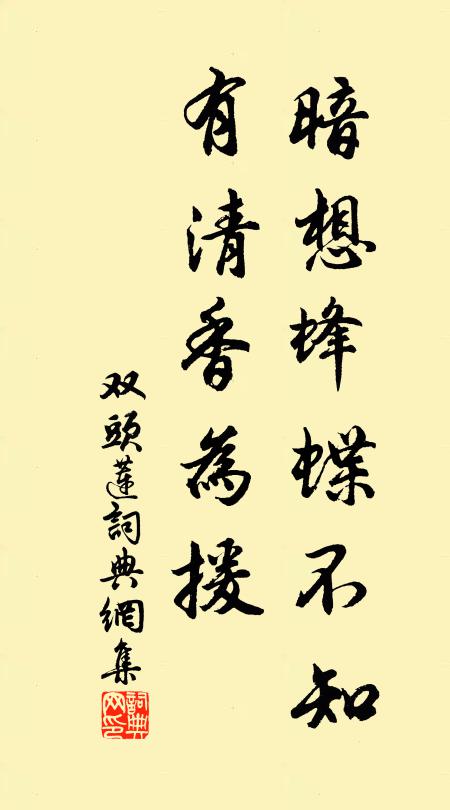 暗想蜂蝶不知
有清香為援
双頭蓮詞典網集
詞典网印